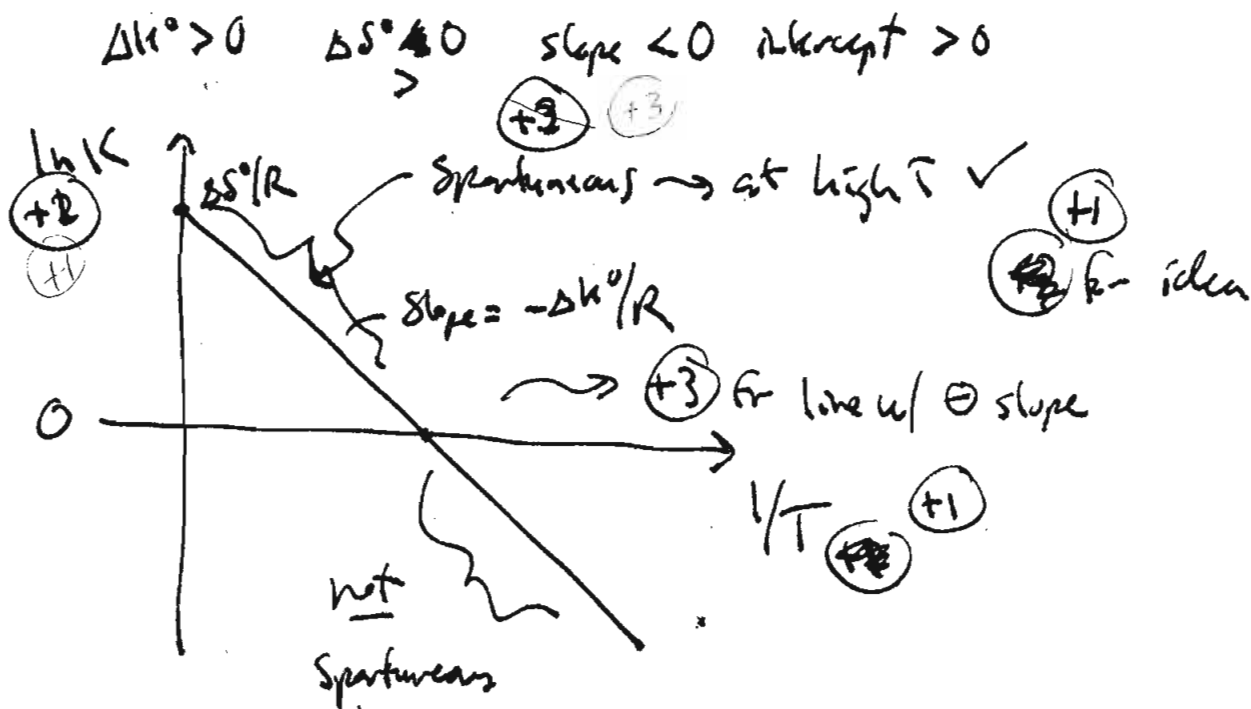 ΔH° > 0 ΔS° > 0 slope < 0 intercept > 0
+3
ln K
ΔS°/R
Spontaneous → at high T ✓
+1
+1
for idea
slope = -ΔH°/R
→ +3 for line w/ ⊖ slope
0
1/T +1
not
spontaneous